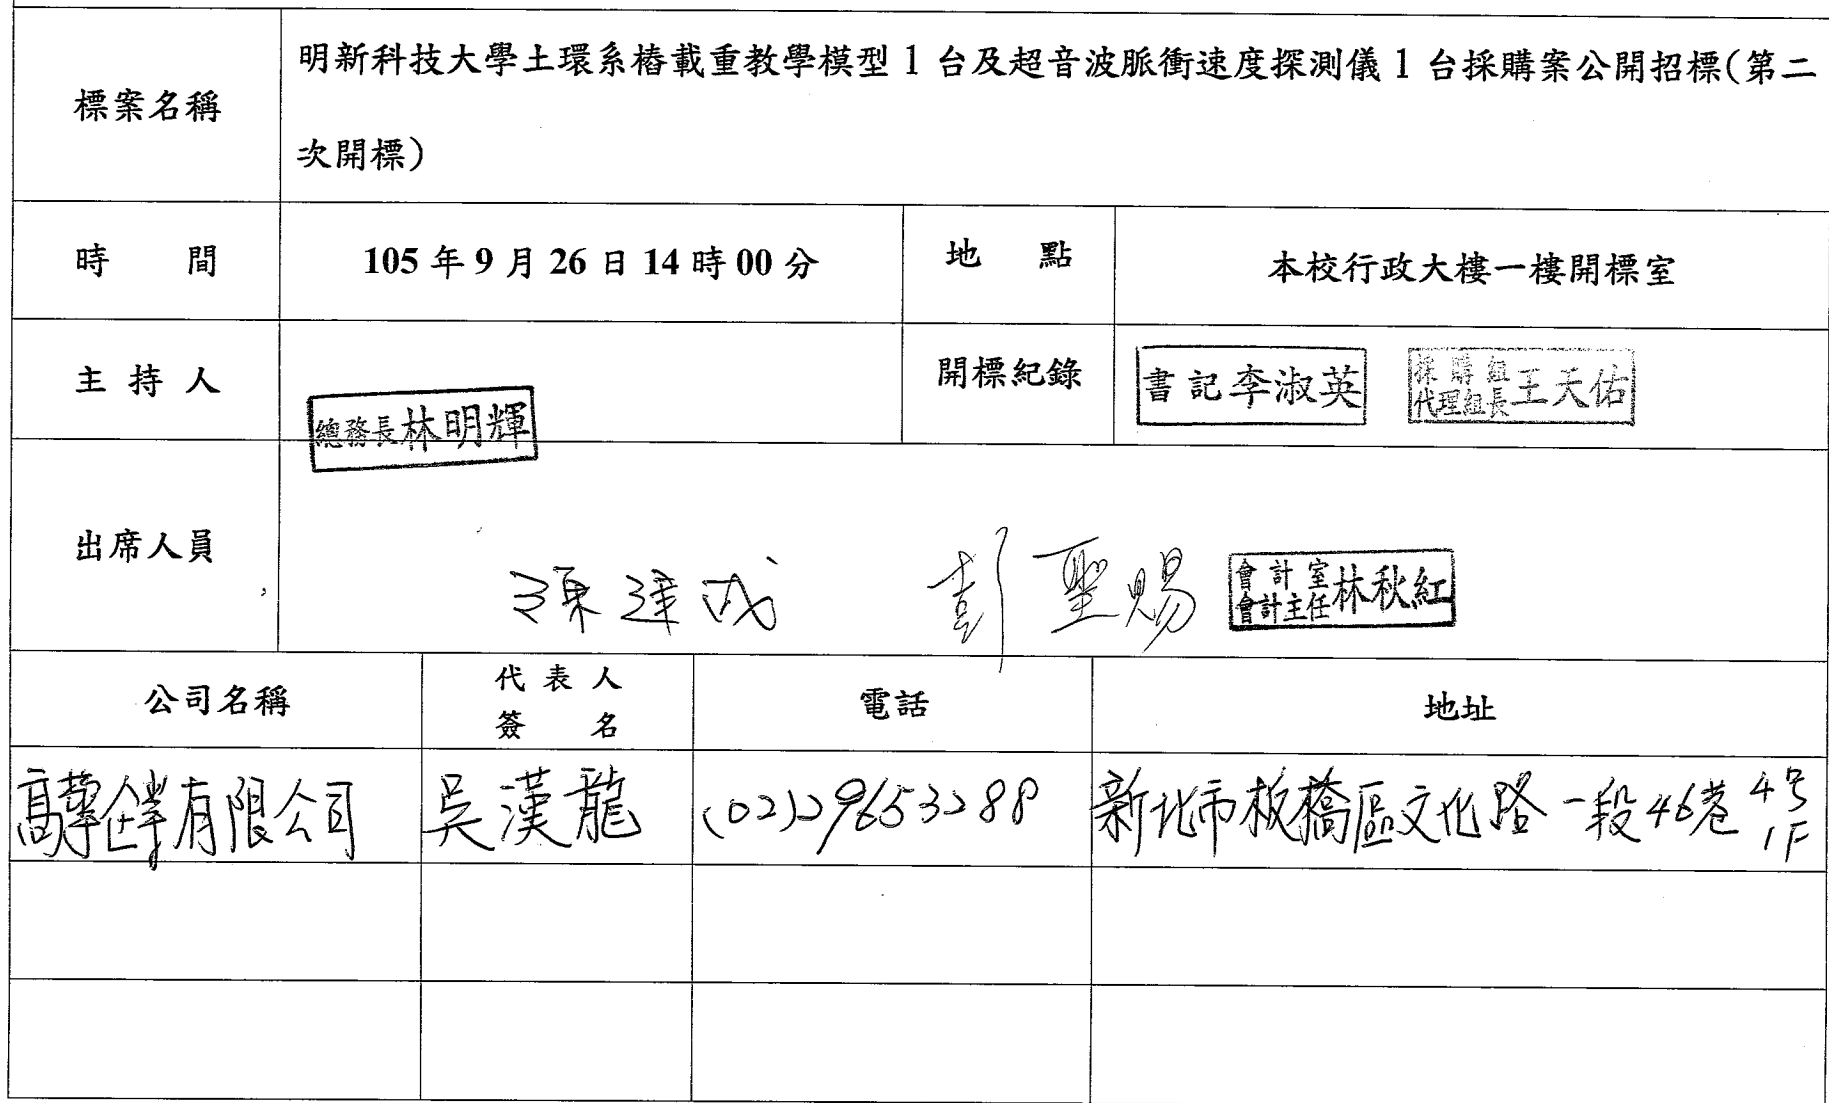 標案名稱
明新科技大學土環系樁載重教學模型 1 台及超音波脈衝速度探測儀 1 台採購案公開招標(第二
次開標)
時 間
105 年 9 月 26 日 14 時 00 分
地 點
本校行政大樓一樓開標室
主 持 人
總務長林明輝
開標紀錄
書記李淑英
採購組
代理組長王天佑
出席人員
陳達成
彭聖賜
會計室
會計主任林秋紅
公司名稱
代 表 人
簽 名
電話
地址
有限公司
吳漢龍
(02)29653288
新北市板橋區文化路一段46巷4号
1F